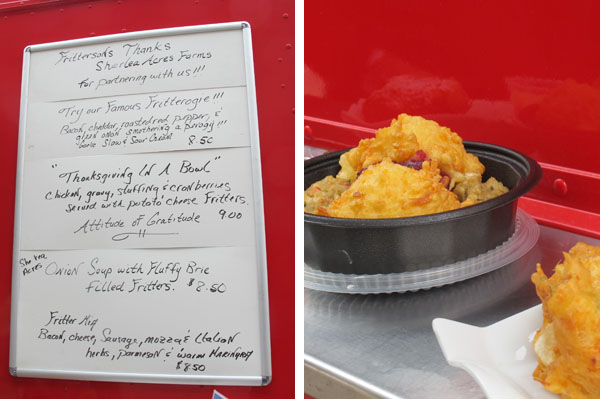 Frittersons Thanks
Sharlea Acres Farms
for partnering with us!!!
Try our Famous Fritterogie!!!
Bacon, cheddar, roasted red pepper, &
green onion smothering a perogy!!
Slow & Sour Cream 8.50
"Thanksgiving In A Bowl"
Chicken, gravy, stuffing & cranberries
served with potato cheese Fritters.
Attitude of Gratitude 9.00
Acres
Onion Soup with Fluffy Brie
filled Fritters. $8.50
Fritter
Bacon, cheese, Sausage, mozza & Italian
herbs, parmeson & warm Marinara
$8.50